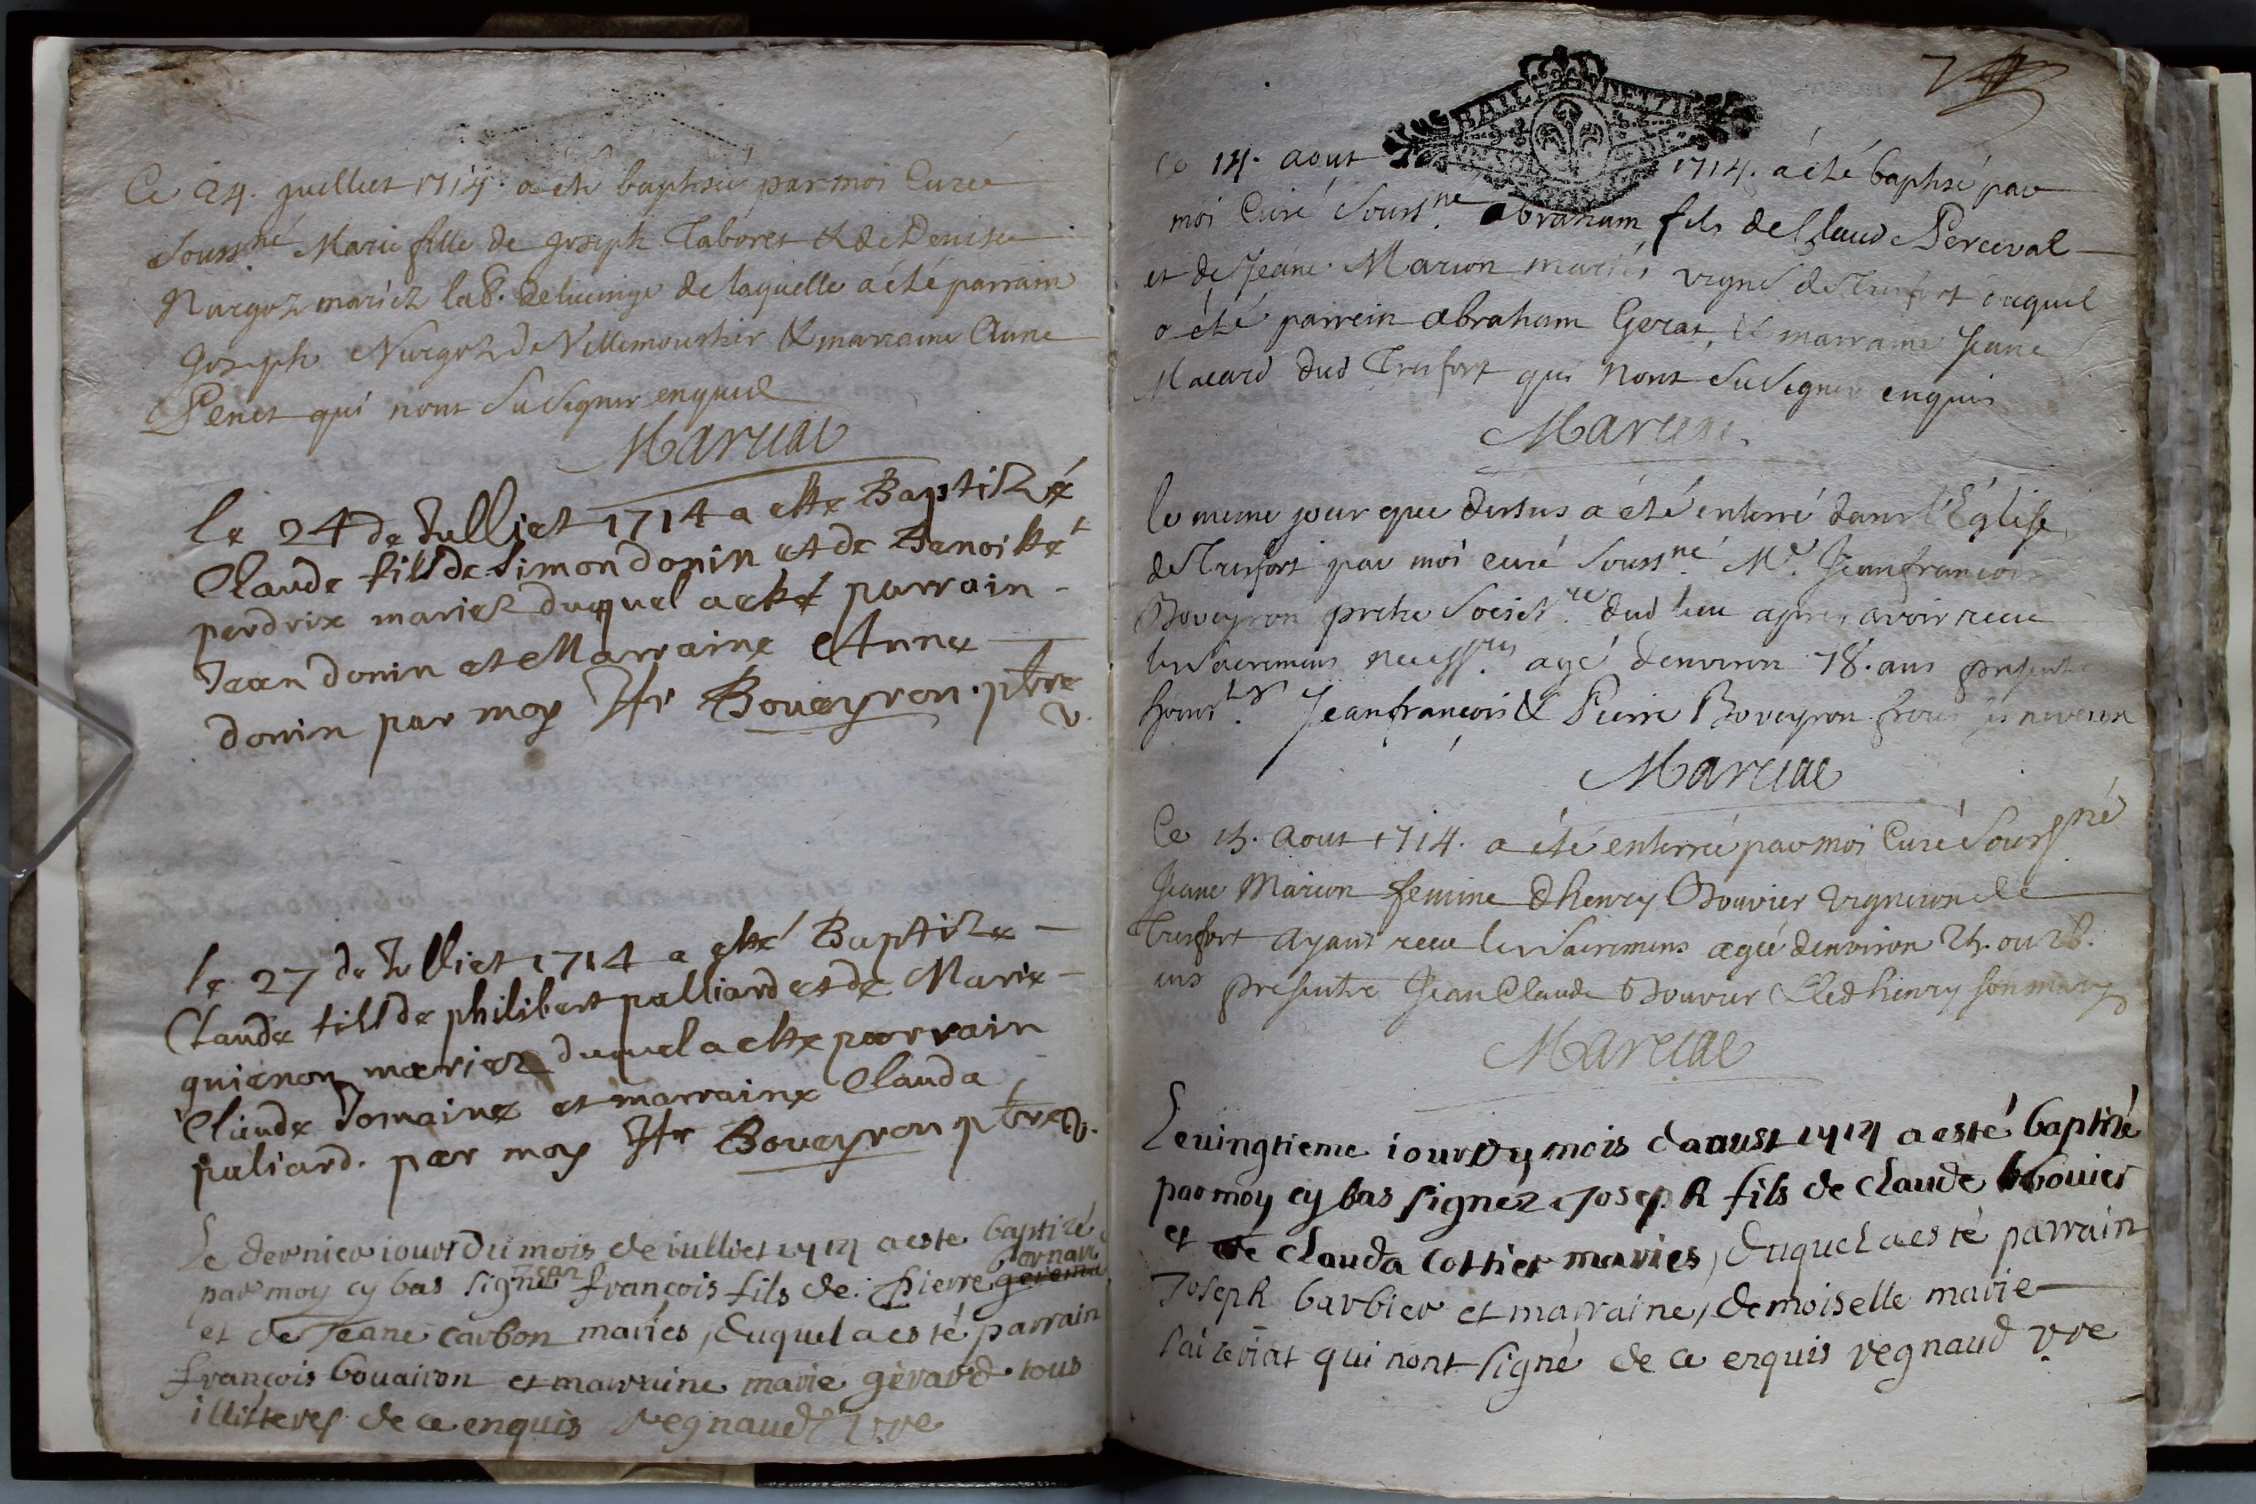 Ce 24. juillet 1714. a été baptisée par moi Curé
Souss.né Marie fille de Joseph Taboret & de Denise
Nurgoz mariez lab. de lucinge de laquelle a été parrain
Joseph Nurgoz de Villemoutier & marraine Anne
Penet qui nont Su Signer enquid
Marcial
le 24 de Julliet 1714 a este Baptizé
Claude fils de Simon donin et de Benoiste
perdrix mariez duquel a esté parrain
Jean donin et Marraine Anne
donin par moy Hr Boueyron ptre
v.
le 27 de Julliet 1714 a esté Baptize
Claude fils de philibert palliard et de Marie
guienon mariez duquel a este parrain
Claude Jomaine et marraine Clauda
paliard. par moy Hr Boueyron ptre v.
le dernier iour du mois de iulliet 1714 a este baptizé
par moy cy bas signé Jean françois fils de pierre bornar
et de Jeane carbon mariés, duquel a esté parrain
françois bouairon et marraine marie gerard tous
illitteres de ce enquis Regnaud vre
7
BAIL DE 1711
SOL DE
Ce 14. aout 1714. a été baptisé par
moi Curé Souss.né abraham fils de Claude Perceval
et de Jeane Marion mariés vigns de Treffort duquel
a été parrein abraham Gerat, & marraine Jeane
Macard dud Treffort qui nont Su Signer enquis
Marcial
le meme jour que dessus a été enterré dans l'Église
de Treffort par moi curé Souss.né Mre Jeanfrancois
Boveyron pretre Societ.re dud lieu apres avoir receu
les Sacremens necess.res agé denviron 78. ans presents
Jeanfrançois & Pierre Boveyron freres ses neveux
Marcial
Ce 15. Aout 1714. a été enterrée par moi Curé Souss.né
Jeane Marion femme dhenry Bouvier vigneron de
Treffort ayant receu les Sacremens agée denviron 25. ou 26.
ans presents Jean Claude Bouvier & led henry son mary
Marcial
Le vingtieme iour du mois daoust 1714 a esté baptizé
par moy cy bas signez Joseph fils de claude bouier
et de clauda cottier mariés, duquel a esté parrain
Joseph barbier et marraine, demoiselle marie
qui nont signé de ce enquis regnaud vre